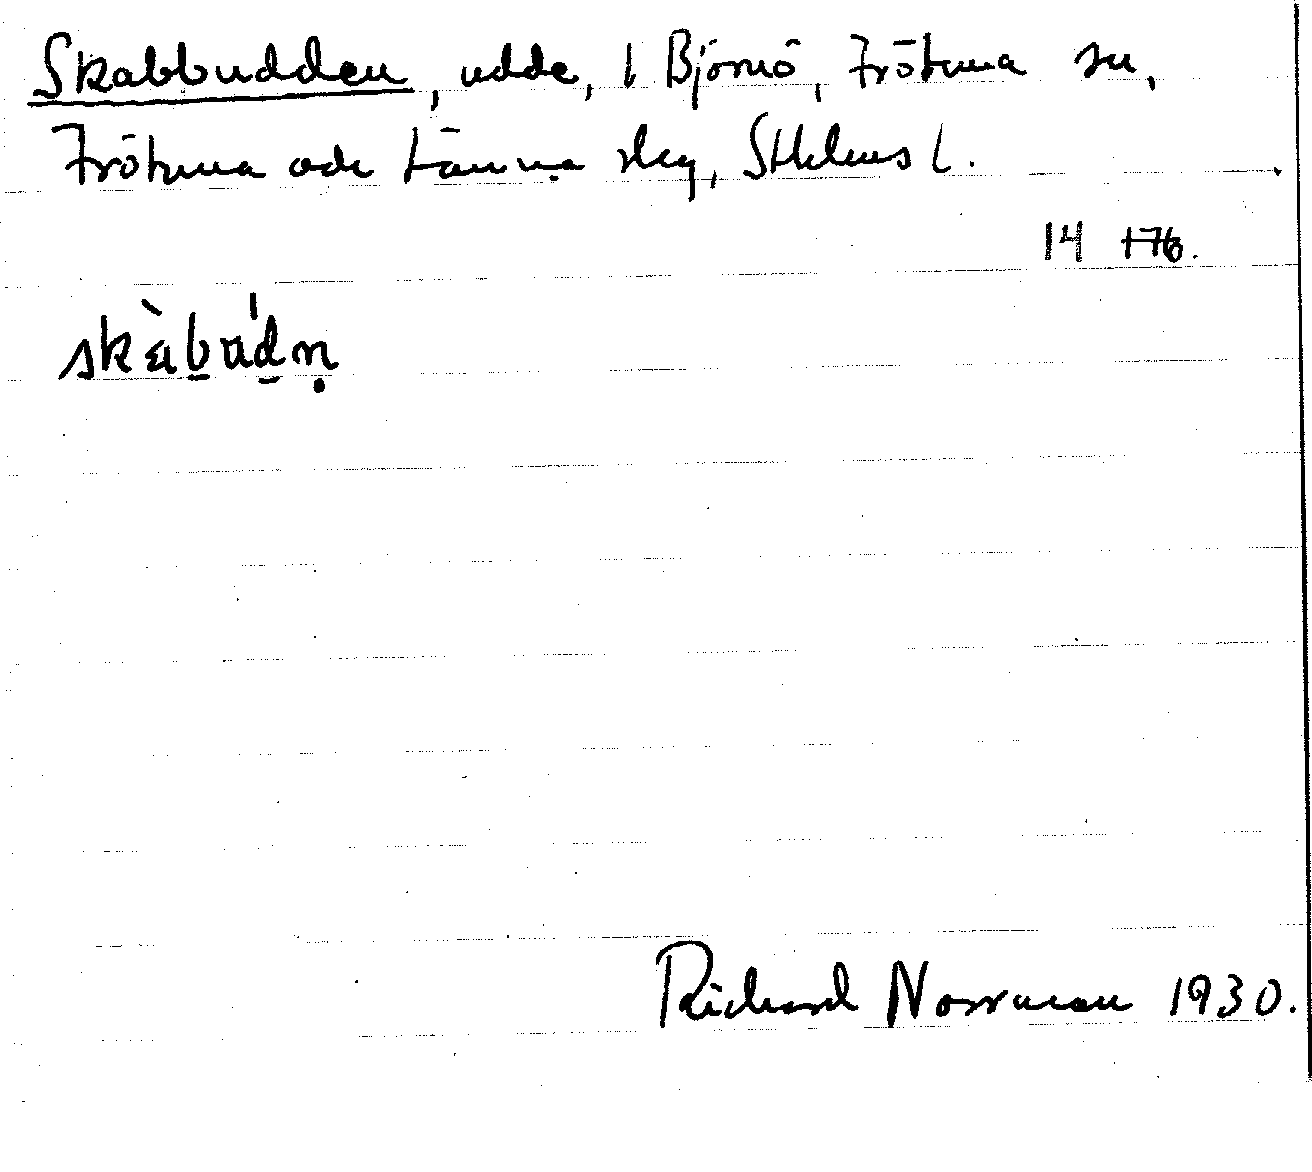 Skabbudden, udde, 1 Björnö, Frötuna sn,
Frötuna och Länna skg, Sthlms l.
14 176.
skàbu̇dṇ
Richard Norrman 1930.